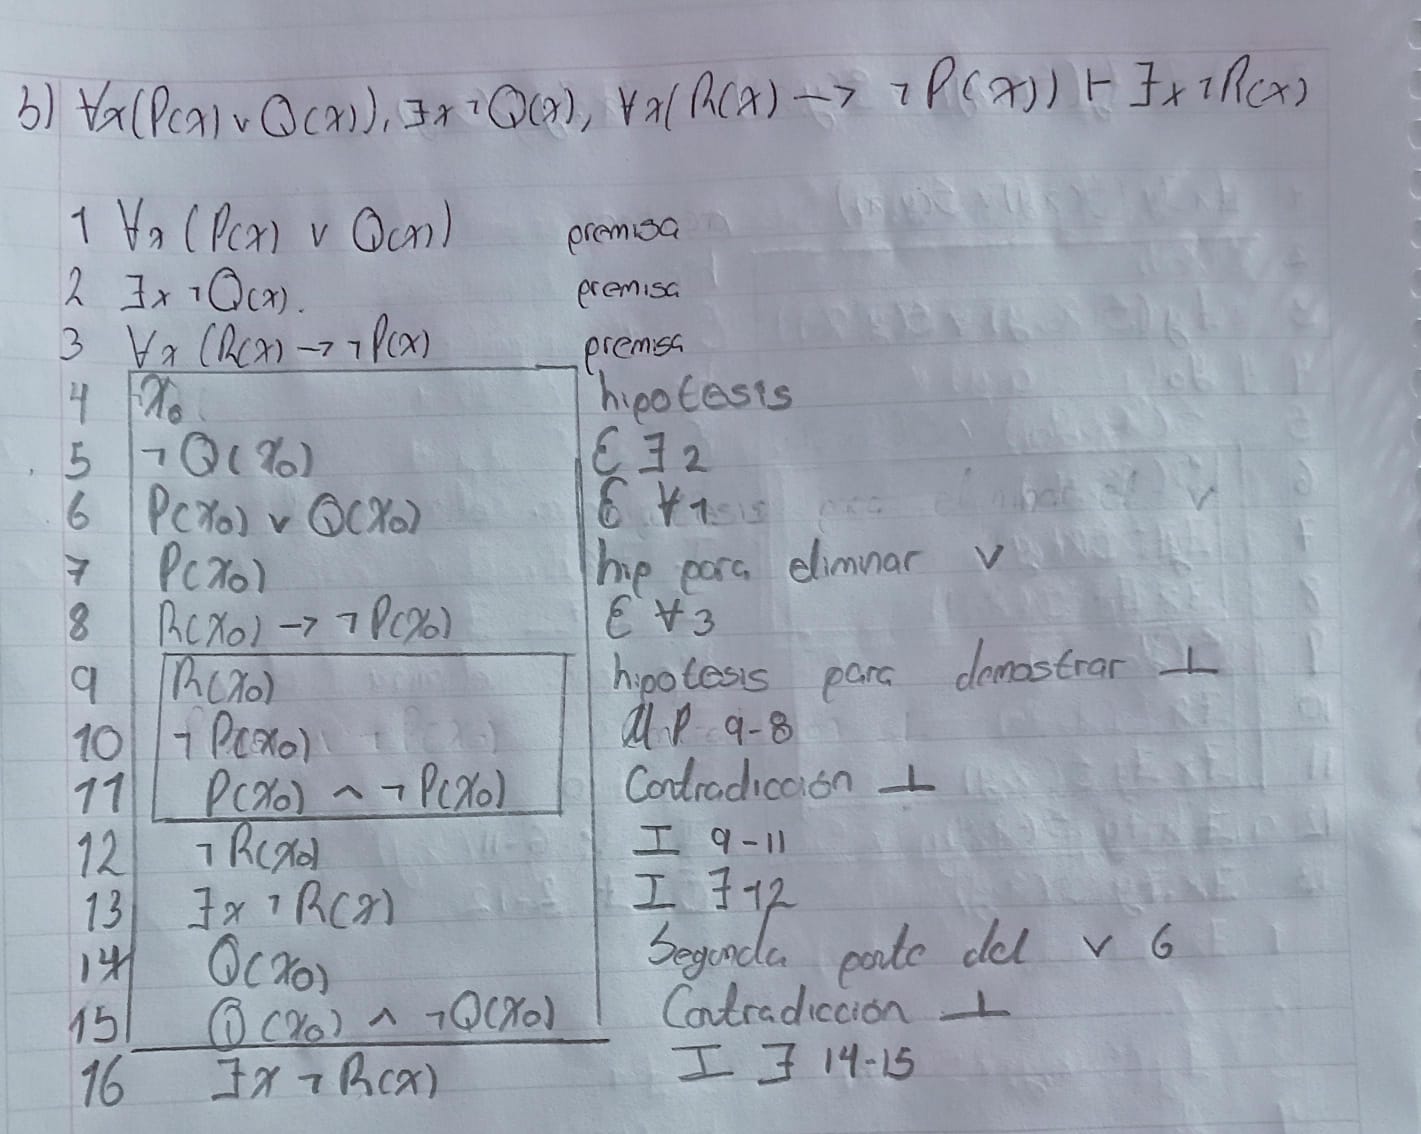 b) ∀x(P(x) ∨ Q(x)), ∃x ¬Q(x), ∀x(R(x) → ¬P(x)) ⊢ ∃x ¬R(x)
1 ∀x (P(x) ∨ Q(x)) premisa
2 ∃x ¬Q(x). premisa
3 ∀x (R(x) → ¬P(x) premisa
4 x₀ hipotesis
5 ¬Q(x₀) E ∃ 2
6 P(x₀) ∨ Q(x₀) E ∀ 1
7 P(x₀) hip para eliminar ∨
8 R(x₀) → ¬P(x₀) E ∀ 3
9 R(x₀) hipotesis para demostrar ⊥
10 ¬P(x₀) M.P 9-8
11 P(x₀) ∧ ¬P(x₀) Contradicción ⊥
12 ¬R(x₀) I 9-11
13 ∃x ¬R(x) I ∃ 12
14 Q(x₀) Segunda parte del ∨ 6
15 Q(x₀) ∧ ¬Q(x₀) Contradicción ⊥
16 ∃x ¬R(x) I ∃ 14-15